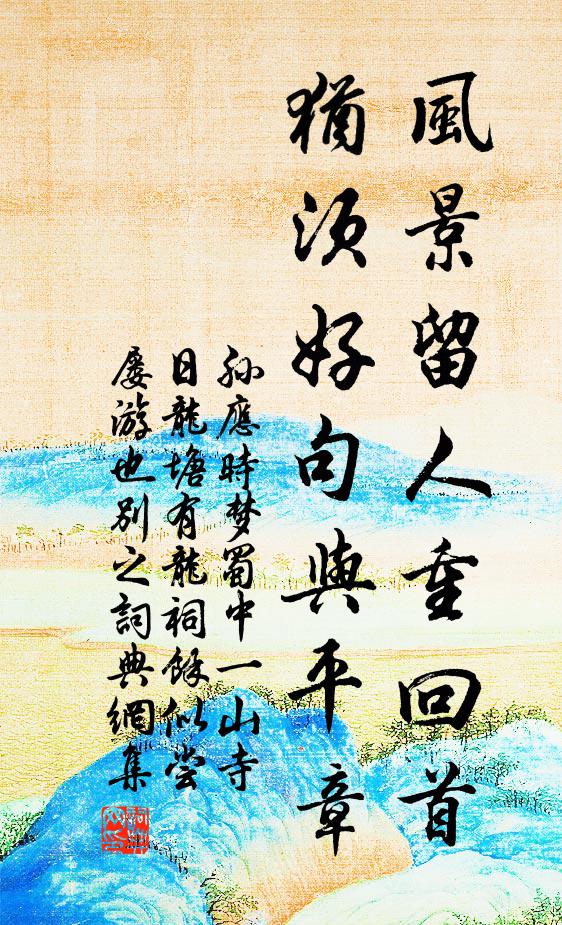 風景留人重回首
猶須好句與平章
孙應時梦蜀中一山寺
日龍塘有龍祠餘似尝
屡游也别之詞典網集